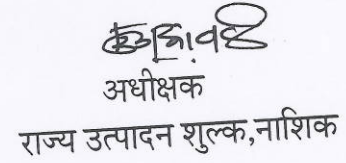 अधीक्षक
राज्य उत्पादन शुल्क,नाशिक